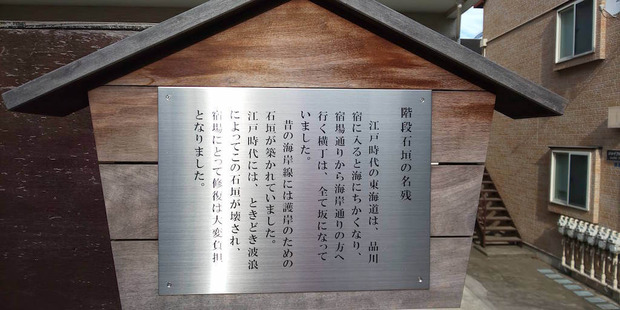 階段石垣の名残
江戸時代の東海道は、品川
宿に入ると海にちかくなり、
宿場通りから海岸通りの方へ
行く横丁は、全て坂になって
いました。
昔の海岸線には護岸のための
石垣が築かれていました。
江戸時代には、ときどき波浪
によってこの石垣が壊され、
宿場にとって修復は大変負担
となりました。